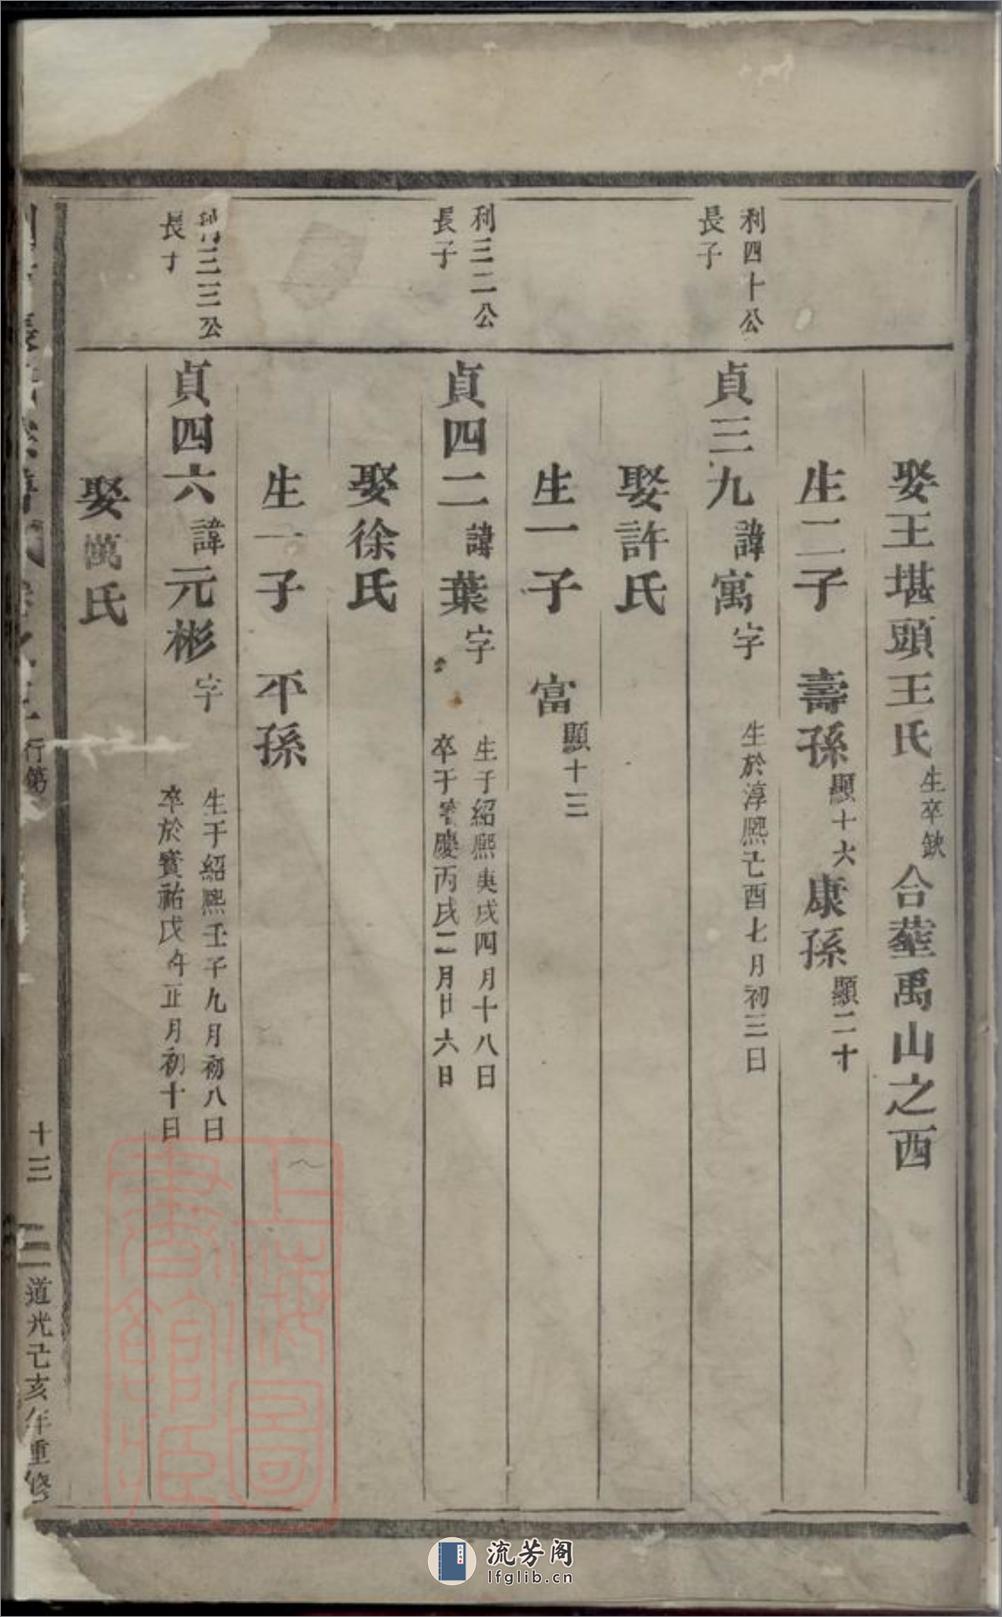 娶王堪頭王氏生卒缺合塟禹山之西
生二子 壽孫顯十六康孫顯二十
利四十公
長子
貞三九諱寓字 生於淳熙己酉七月初三日
娶許氏
生一子 富顯十三
利三二公
長子
貞四二諱葉字
生于紹熙庚戌四月十八日
卒于慶丙戌二月廿六日
娶徐氏
生一子 丕孫
利三三公
長子
貞四六諱元彬字
生于紹熙壬子九月初八日
卒於寶祐戊午正月初十日
娶萬氏
行第
十三
道光己亥年重修
上海圖書館藏
流芳阁
lfglib.cn